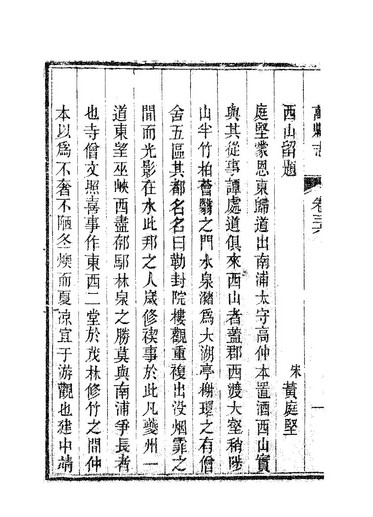 萬縣志 卷三六 一
西山留題 宋 黃庭堅
庭堅蒙恩東歸道出南浦太守高仲本置酒西山實
與其從事譚處道俱來西山者蓋郡西渡大壑稍陟
山半竹柏薈翳之門水泉瀦爲大湖亭榭環之有僧
舍五區其都名名曰勒封院樓觀重複出没烟霏之
間而光影在水此邦之人歲修禊事於此凡夔州一
道東望巫峽西盡郁鄢林泉之勝莫與南浦爭長者
也寺僧文照喜事作東西二堂於茂林修竹之間仲
本以爲不奢不陋冬燠而夏凉宜于游觀也建中靖